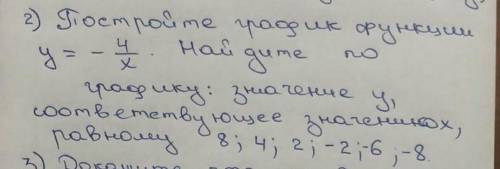 2) Постройте график функции
y = - 4/x. Найдите по
графику: значение y,
соответствующее значению x,
равному 8; 4; 2; -2; -6; -8.